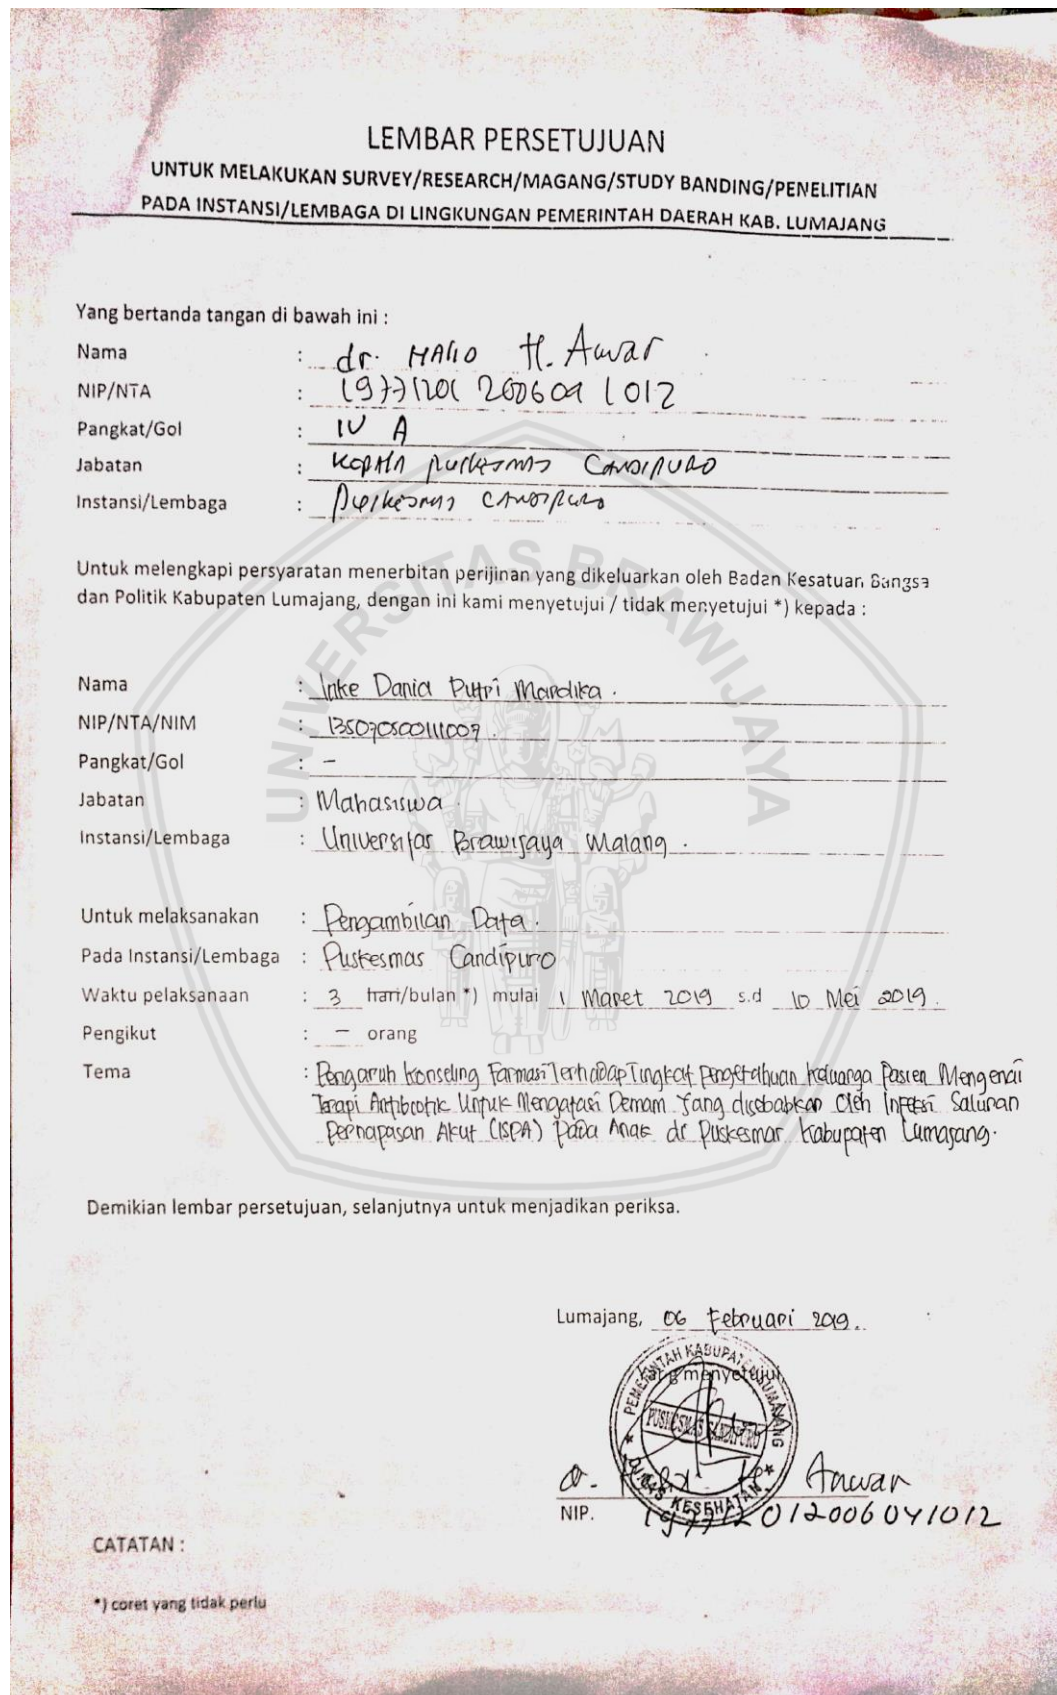 LEMBAR PERSETUJUAN
UNTUK MELAKUKAN SURVEY/RESEARCH/MAGANG/STUDY BANDING/PENELITIAN
PADA INSTANSI/LEMBAGA DI LINGKUNGAN PEMERINTAH DAERAH KAB. LUMAJANG
Yang bertanda tangan di bawah ini :
Nama : dr. H. Anwar
NIP/NTA :
Pangkat/Gol : IV A
Jabatan : Kepala Puskesmas Candipuro
Instansi/Lembaga : Puskesmas Candipuro
Untuk melengkapi persyaratan menerbitan perijinan yang dikeluarkan oleh Badan Kesatuan Bangsa
dan Politik Kabupaten Lumajang, dengan ini kami menyetujui / tidak menyetujui *) kepada :
Nama : Inke Dania Putri Mardika .
NIP/NTA/NIM : 135070500111007 .
Pangkat/Gol : -
Jabatan : Mahasiswa .
Instansi/Lembaga : Universitas Brawijaya Malang .
Untuk melaksanakan : Pengambilan Data .
Pada Instansi/Lembaga : Puskesmas Candipuro
Waktu pelaksanaan : 3 hari/bulan *) mulai 1 Maret 2019 s.d 10 Mei 2019 .
Pengikut : - orang
Tema : Pengaruh Konseling Farmasi Terhadap Tingkat Pengetahuan Keluarga Pasien Mengenai
Terapi Antibiotik Untuk Mengatasi Demam Yang disebabkan Oleh Infeksi Saluran
Pernapasan Akut (ISPA) Pada Anak di Puskesmas Kabupaten Lumajang.
Demikian lembar persetujuan, selanjutnya untuk menjadikan periksa.
Lumajang, 06 Februari 2019 .
Yang menyetujui
PEMERINTAH KABUPATEN LUMAJANG
PUSKESMAS CANDIPURO
DINAS KESEHATAN
Anwar
NIP. 197712012006041012
CATATAN :
*) coret yang tidak perlu
UNIVERSITAS BRAWIJAYA